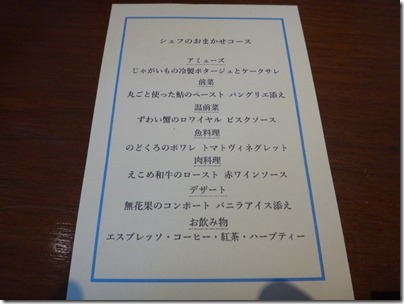 シェフのおまかせコース
アミューズ
じゃがいもの冷製ポタージュとケークサレ
前菜
丸ごと使った鮎のペースト パングリエ添え
温前菜
ずわい蟹のロワイヤル ビスクソース
魚料理
のどくろのポワレ トマトヴィネグレット
肉料理
えこめ和牛のロースト 赤ワインソース
デザート
無花果のコンポート バニラアイス添え
お飲み物
エスプレッソ・コーヒー・紅茶・ハーブティー